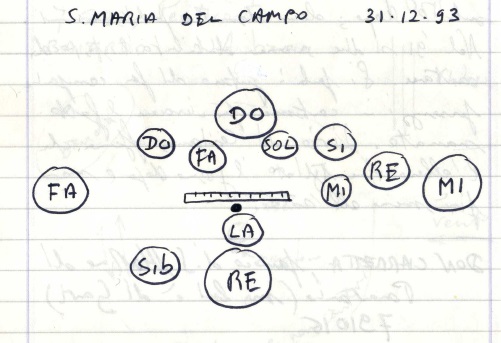 S. MARIA DEL CAMPO 31.12.93
DO
DO FA SOL SI
FA MI RE MI
LA
SIb RE